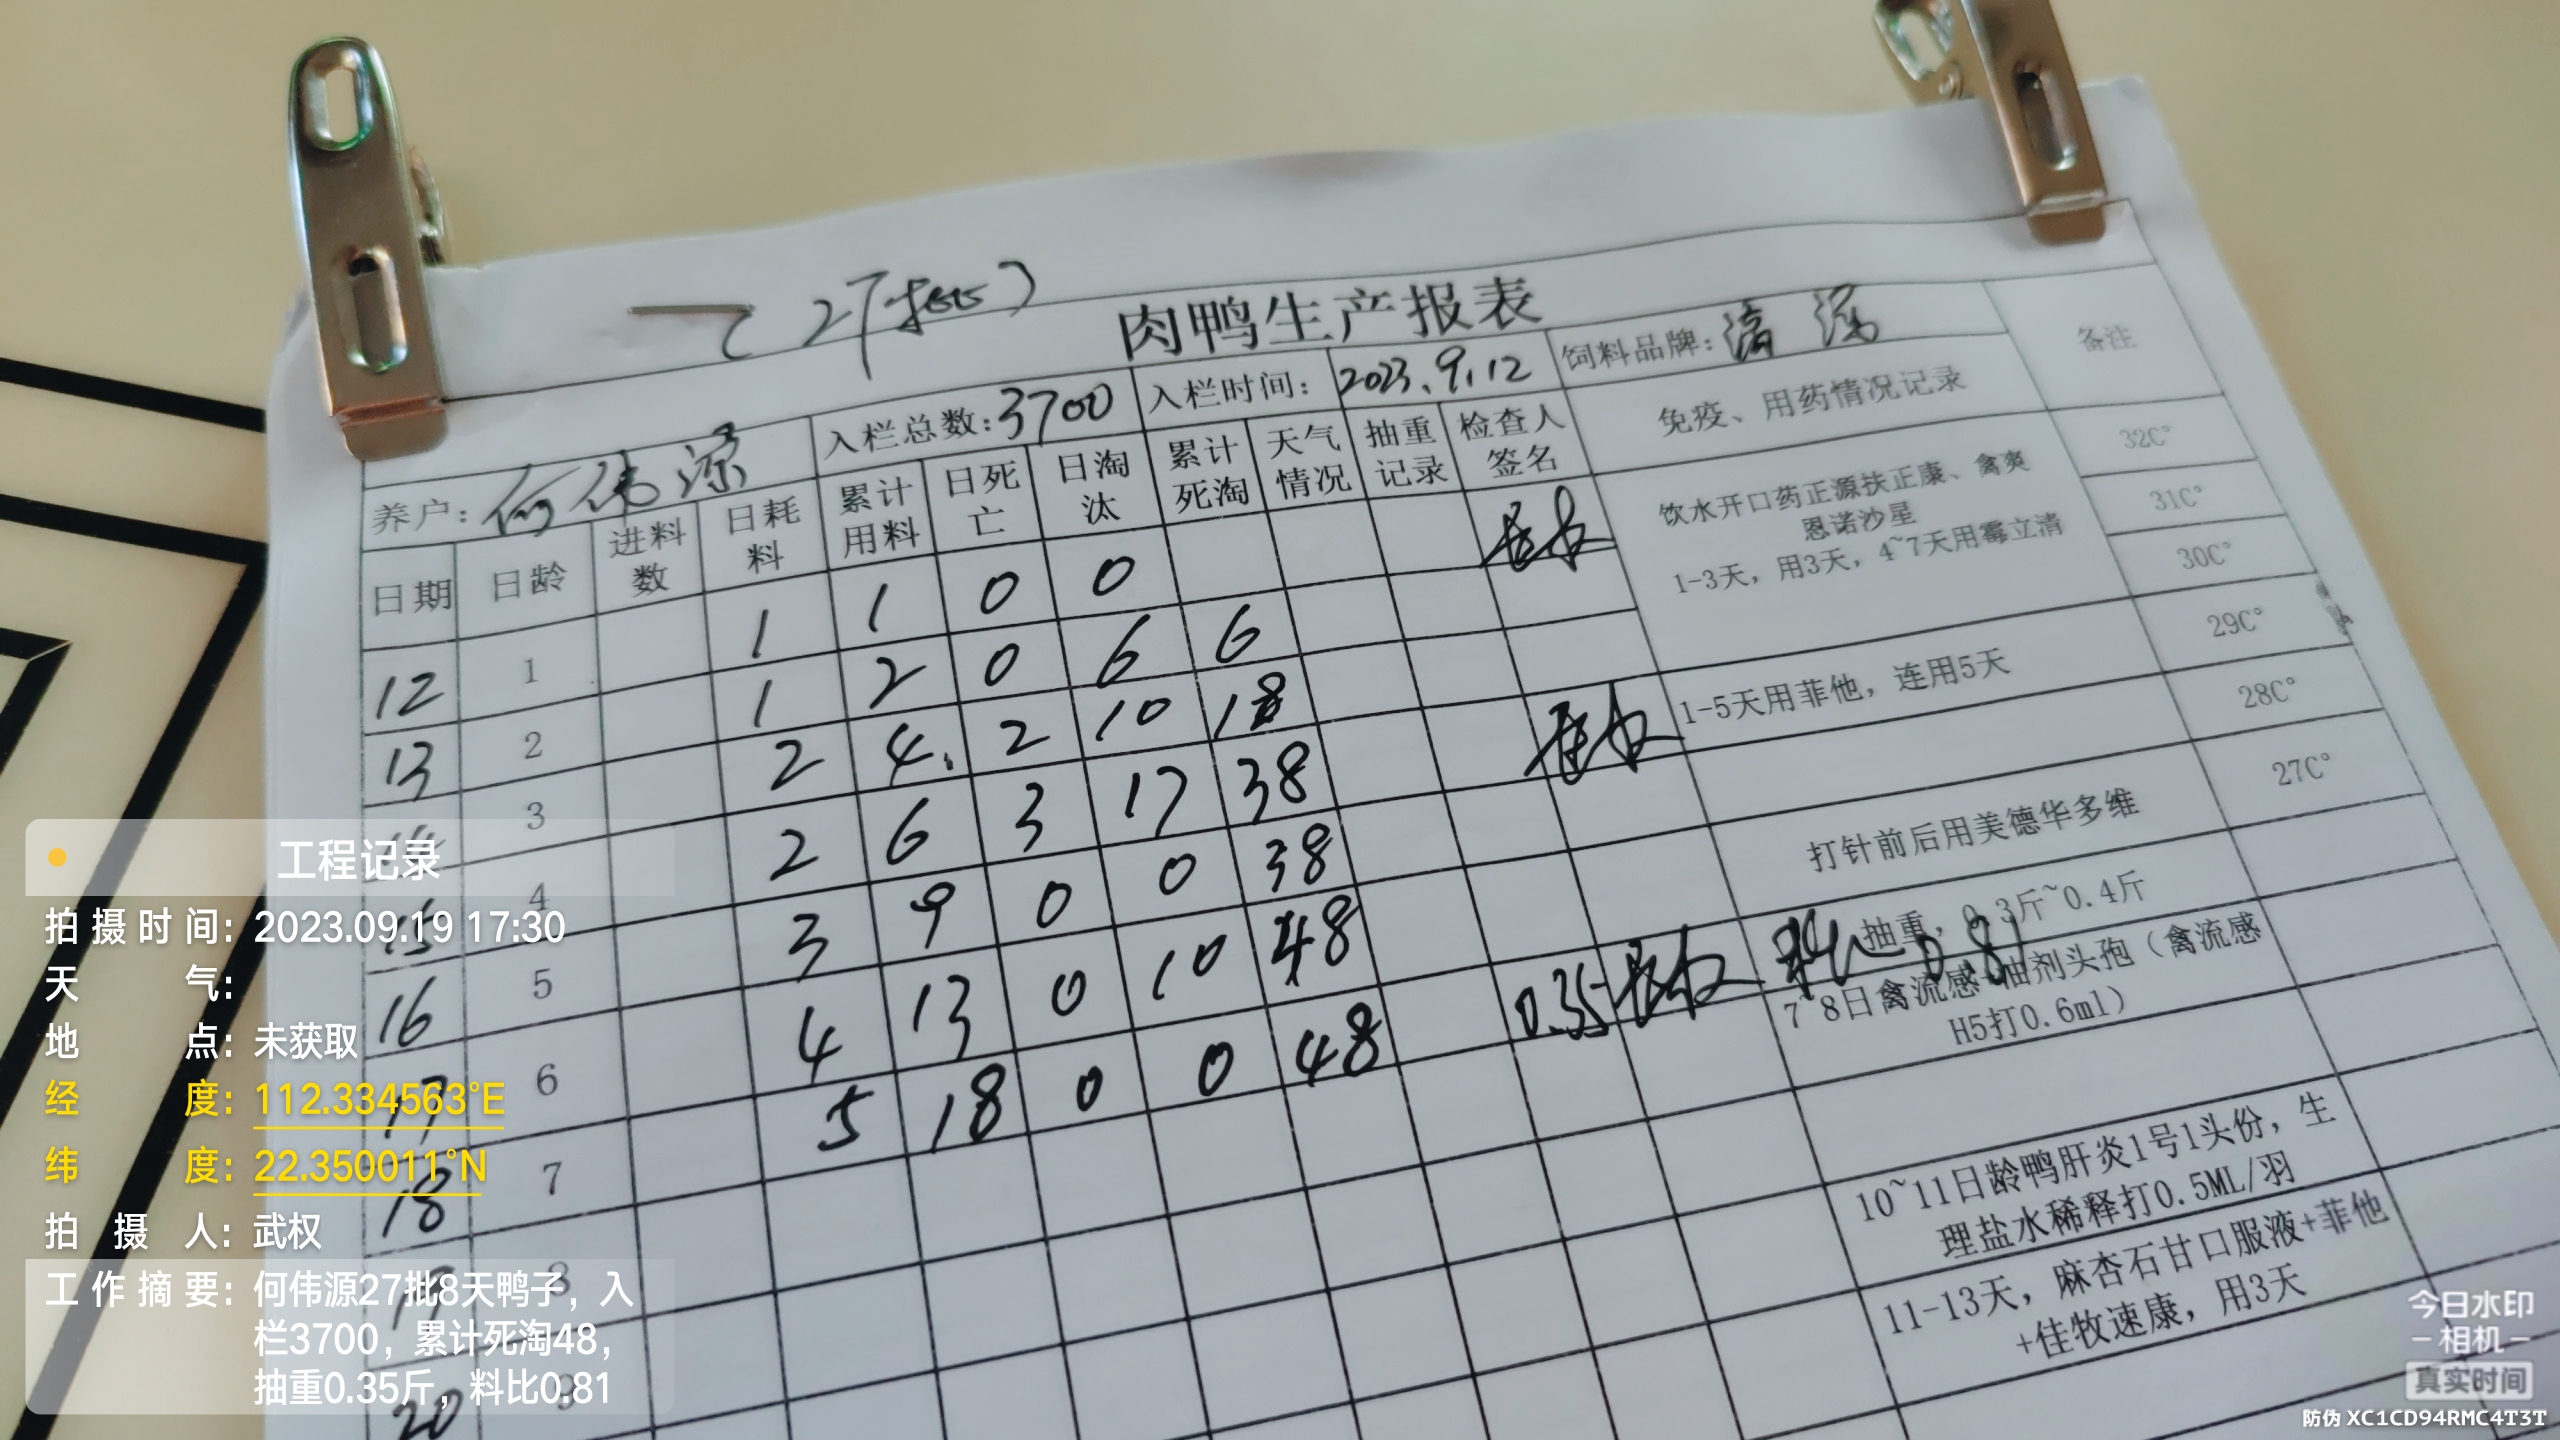 (27批)
肉鸭生产报表
养户：何伟源 入栏总数：3700 入栏时间：2023.9.12 饲料品牌： 备注
日期 日龄 进料数 日耗料 累计用料 日死亡 日淘汰 累计死淘 天气情况 抽重记录 检查人签名 免疫、用药情况记录
12 1 1 1 0 0
13 2 1 2 0 6 6
14 3 2 4 2 10 18
15 4 2 6 3 17 38
16 5 3 9 0 0 38
17 6 4 13 0 10 48
18 7 5 18 0 0 48 0.35 料比0.81
8
20 9
饮水开口药正源扶正康、禽爽
恩诺沙星
1-3天，用3天，4~7天用霉立清
1-5天用菲他，连用5天
打针前后用美德华多维
抽重，0.3斤~0.4斤
7~8日禽流感+油剂头孢（禽流感
H5打0.6ml）
10~11日龄鸭肝炎1号1头份，生
理盐水稀释打0.5ML/羽
11-13天，麻杏石甘口服液+菲他
+佳牧速康，用3天
32C°
31C°
30C°
29C°
28C°
27C°
工程记录
拍摄时间：2023.09.19 17:30
天气：
地点：未获取
经度：112.334563°E
纬度：22.350011°N
拍摄人：武权
工作摘要：何伟源27批8天鸭子，入
栏3700，累计死淘48，
抽重0.35斤，料比0.81
今日水印
-相机-
真实时间
防伪 XC1CD94RMC4T3T